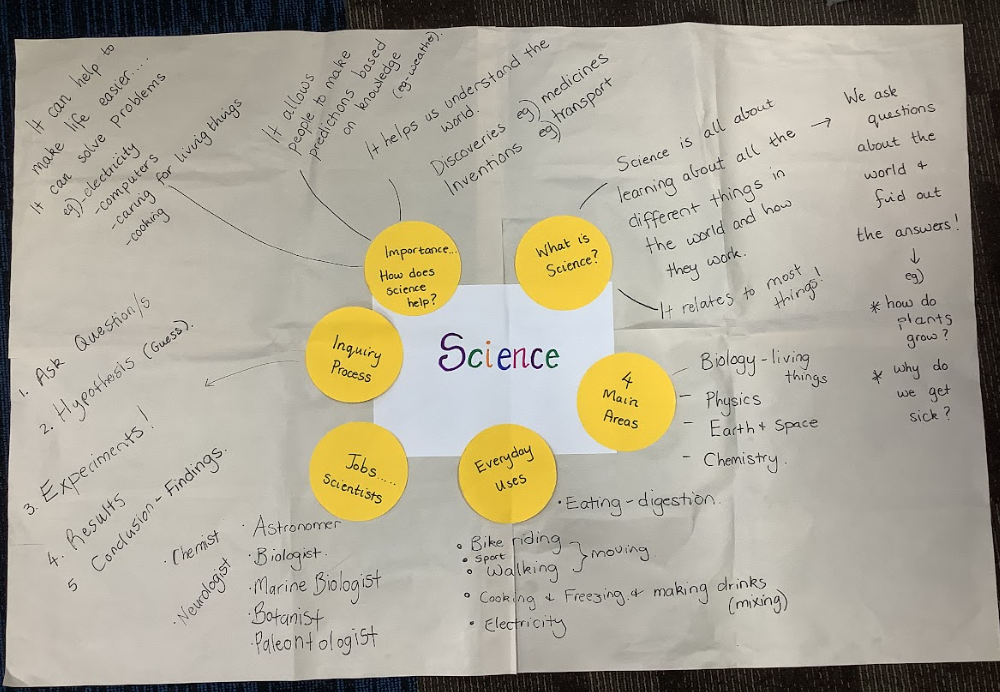 Science
Importance...
How does
science
help?
It can help to
make life easier....
It can solve problems
eg)-electricity
-computers
-caring for living things
-cooking
It allows
people to make
predictions based
on knowledge
(eg-weather).
It helps us understand the
world.
Discoveries eg) medicines
Inventions eg) transport
What is
Science?
Science is all about
learning about all the
different things in
the world and how
they work.
→ We ask
questions
about the
world &
find out
the answers!
↓
eg)
* how do
plants
grow?
* why do
we get
sick?
It relates to most
things!
4
Main
Areas
Biology - living
things
- Physics
- Earth & Space
- Chemistry.
Everyday
Uses
• Eating - digestion.
• Bike riding
• Sport
• Walking
} moving
• Cooking & Freezing & making drinks
(mixing)
• Electricity
Jobs.....
Scientists
• Astronomer
• Biologist.
• Marine Biologist
• Botanist
• Paleontologist
• Chemist
• Neurologist
Inquiry
Process
1. Ask Question/s
2. Hypothesis (Guess).
3. Experiments!
4. Results
5 Conclusion - Findings.